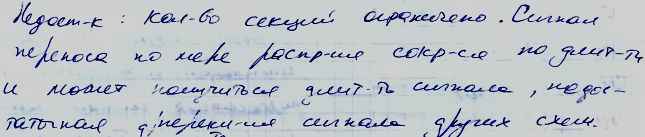 Недост-к : кол-во секций ограничено. Сигнал
переноса по мере распр-ния сокр-ся по длит-ти
и может получиться длит-ть сигнала, недос-
таточная д/переки-ия сигнала других схем.